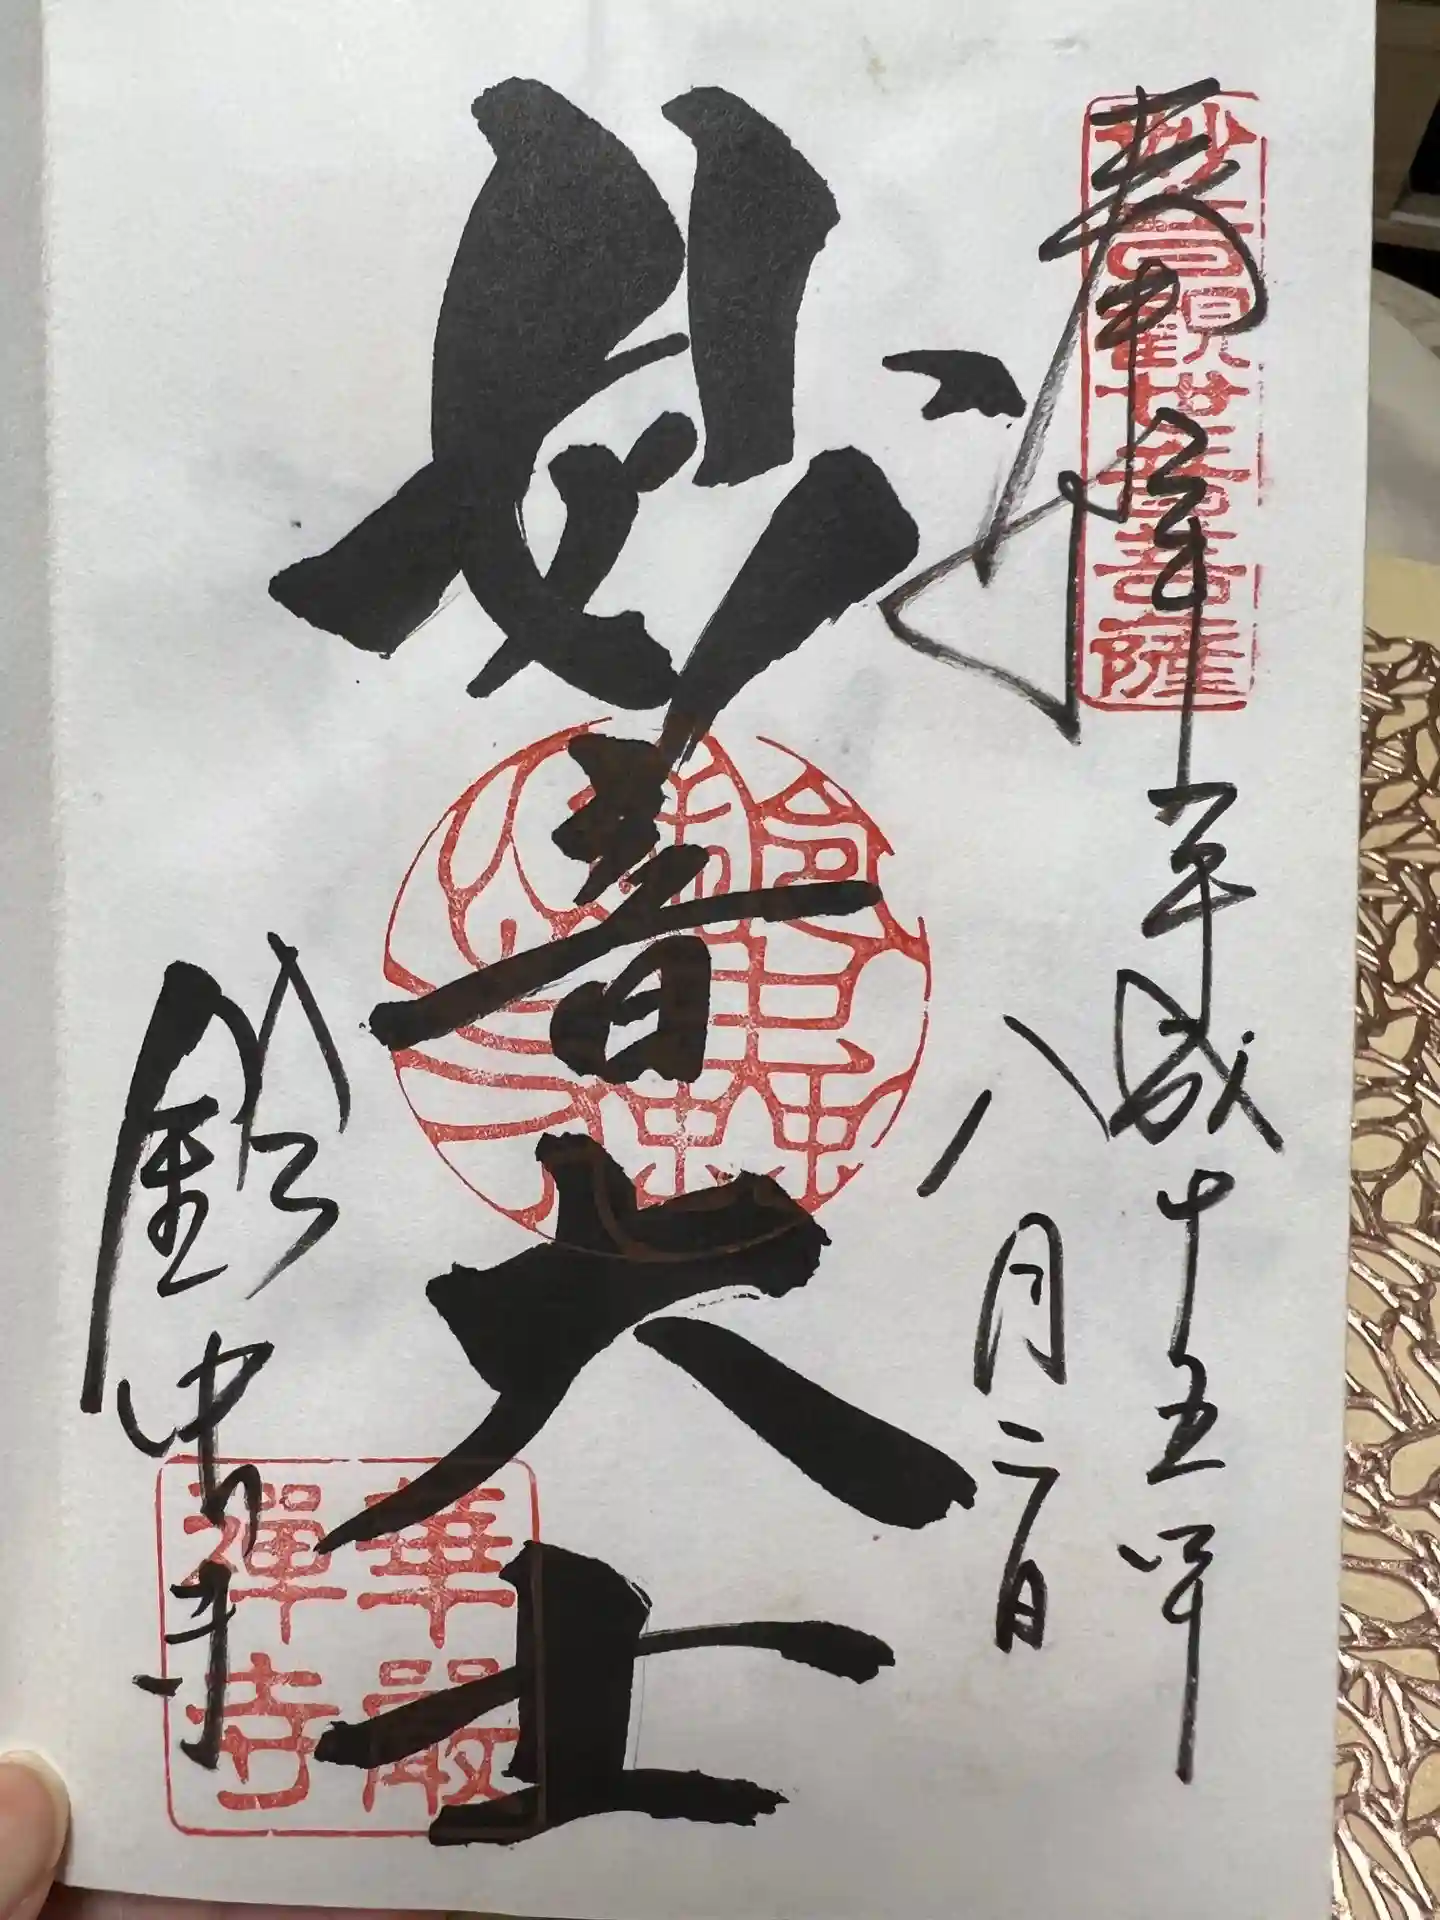 奉拝 平成十五年
妙音觀世音菩薩
八月二日
妙音大士
鈴虫寺
華嚴禪寺